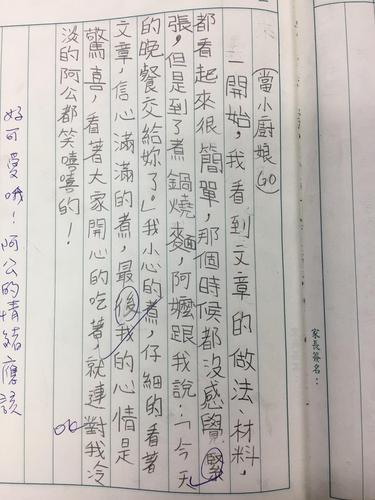 當小廚娘GO
一開始，我看到文章的做法、材料，
都看起來很簡單，那個時候都沒感覺緊
張，但是到了煮鍋燒麵，阿嬤跟我說：「今天
的晚餐交給妳了。」我小心的煮，仔細的看著
文章，信心滿滿的煮，最後我的心情是
驚喜，看著大家開心的吃著，就連對我冷
淡的阿公都笑嘻嘻的！
ok
好可愛哦！阿公的情緒應該
家長簽名：